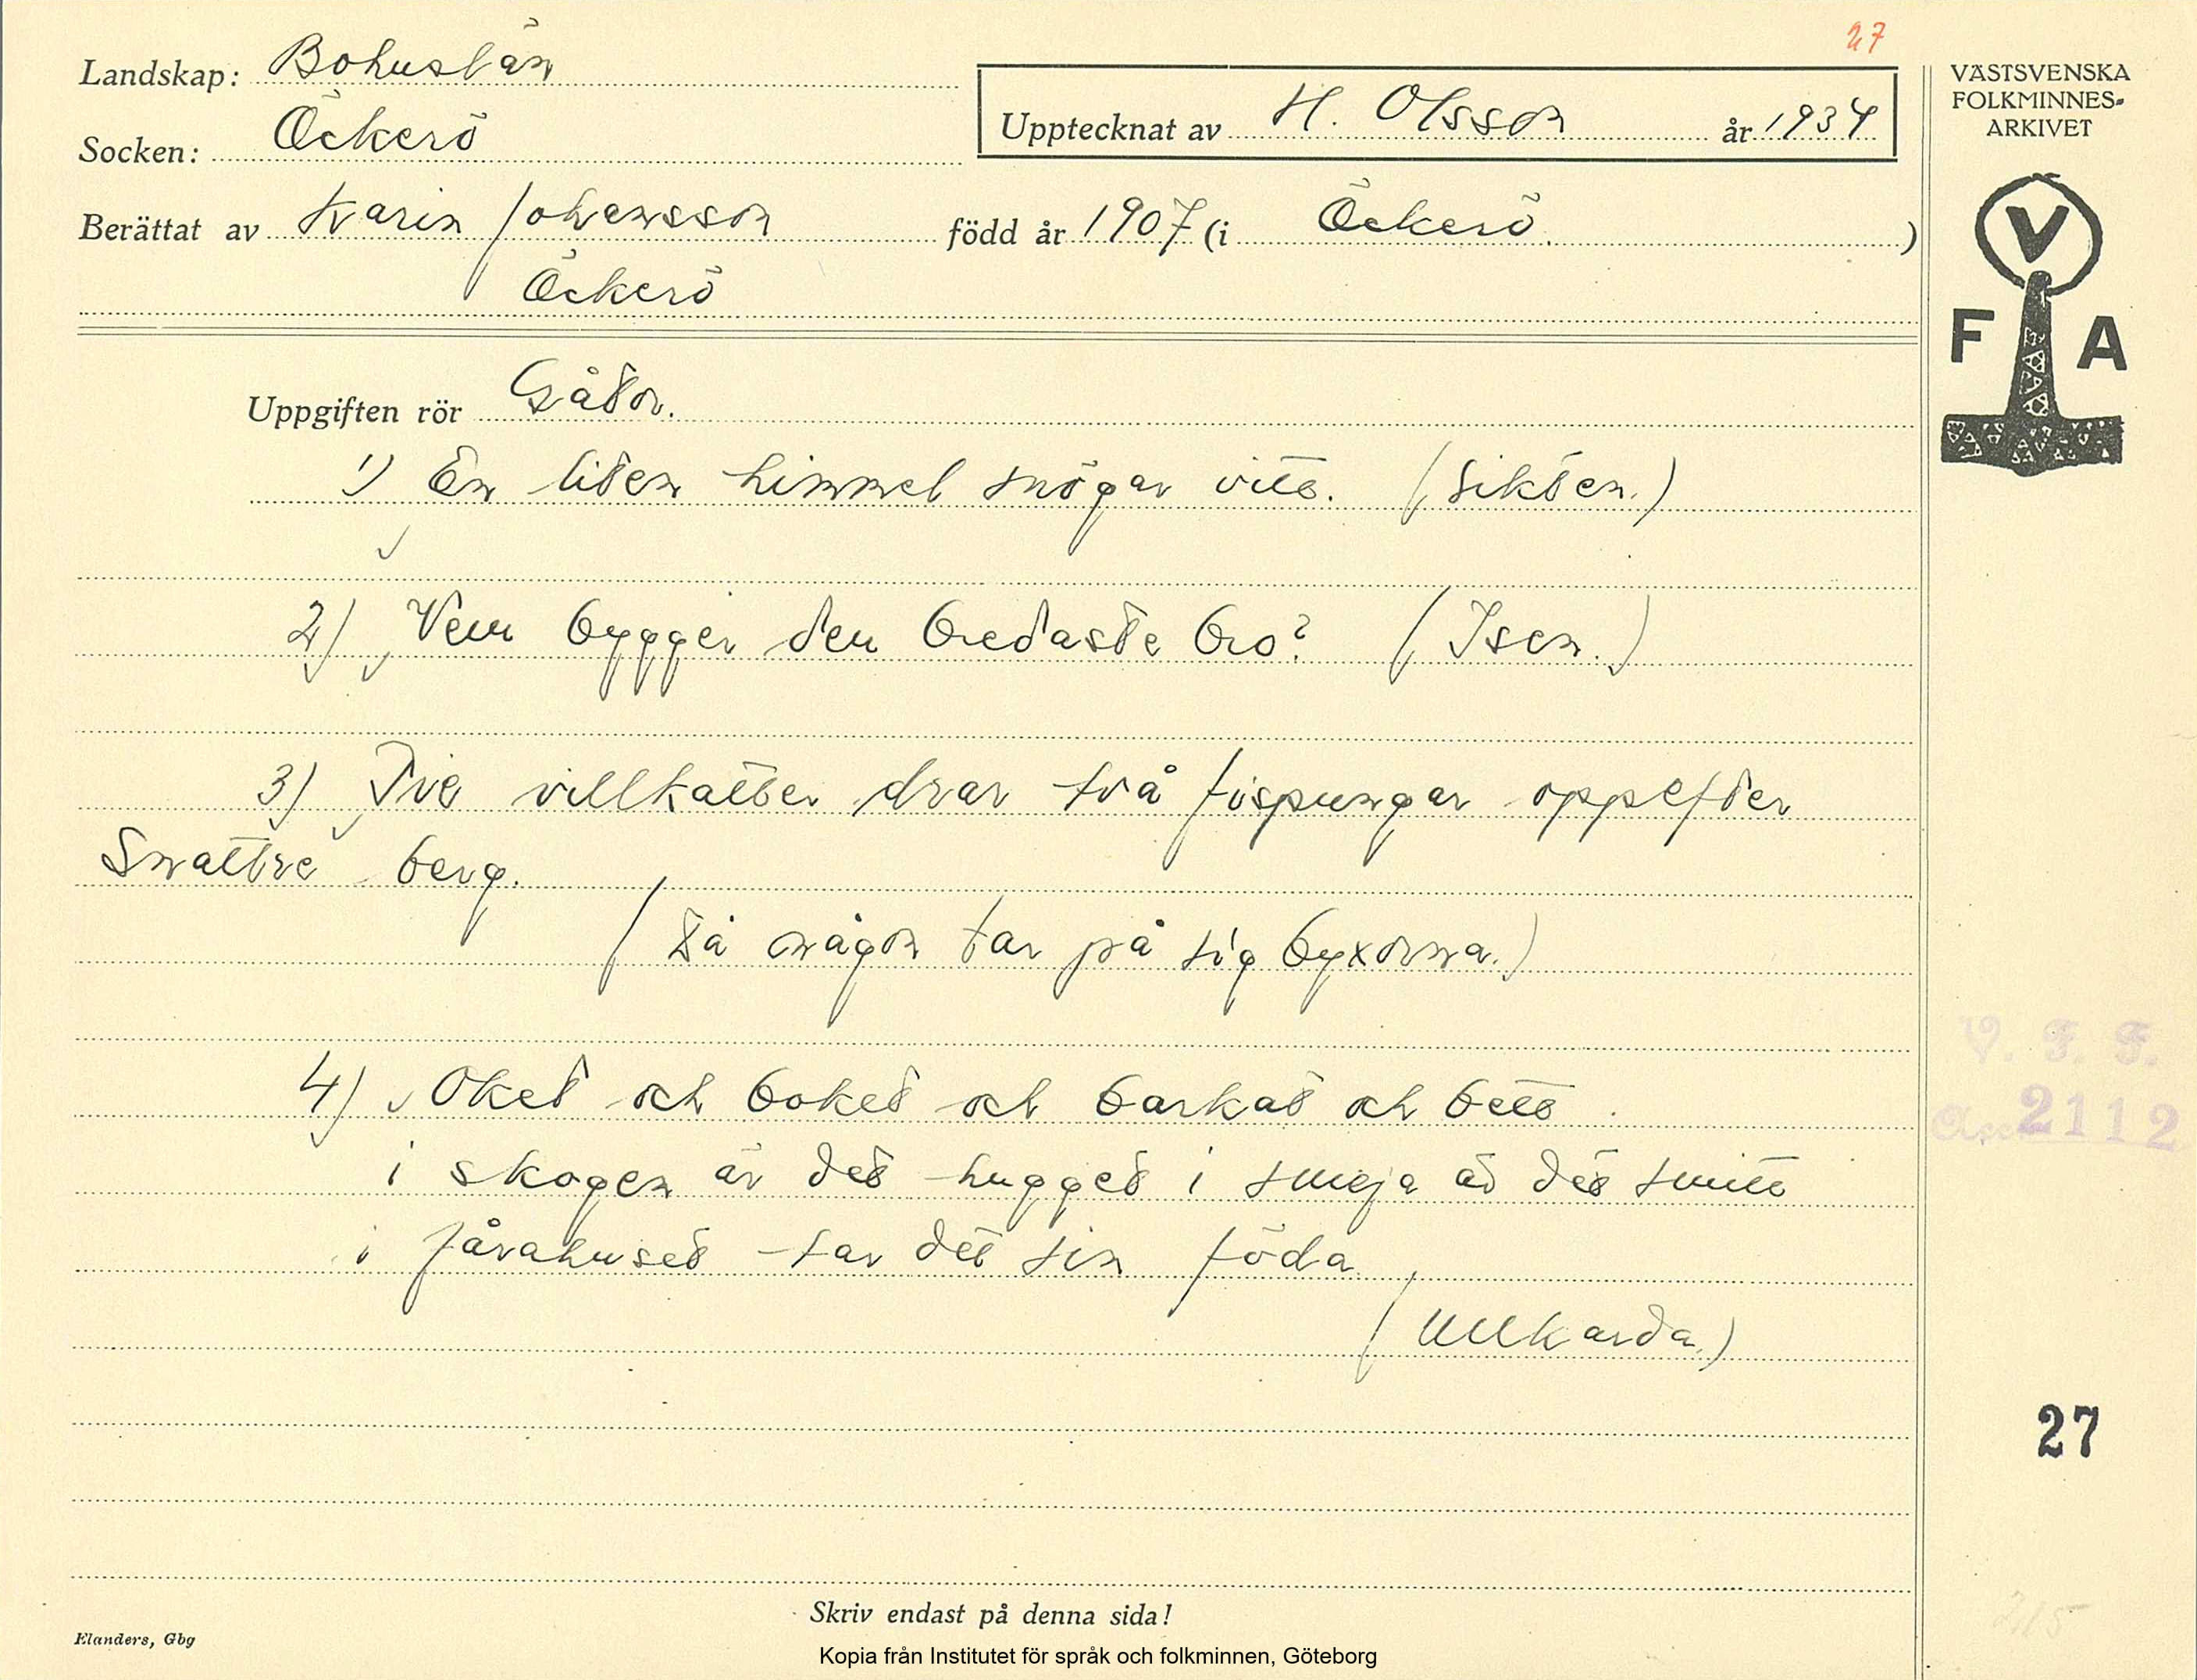 27
Landskap: Bohuslän
Socken: Öckerö
Upptecknat av H. Olsson år 1934
Berättat av Karin Johansson född år 1907 (i Öckerö.)
Öckerö
VÄSTSVENSKA
FOLKMINNES-
ARKIVET
V
F A
Uppgiften rör Gåtor.
1) En liten himmel snögar vitt. (Sikten.)
2) Vem bygger den bredaste bro? (Isen.)
3) Tie villkatter drar två fispungar oppefter
Snattre berg.
(Då någon tar på sig byxorna.)
4) Oket och boket och barkat och bett
i skogen är det hugget i smeja är det smitt
i fårahuset tar det sin föda
(Ullkarda.)
V. F. F.
Acc 2112
27
215
Skriv endast på denna sida!
Elanders, Gbg
Kopia från Institutet för språk och folkminnen, Göteborg